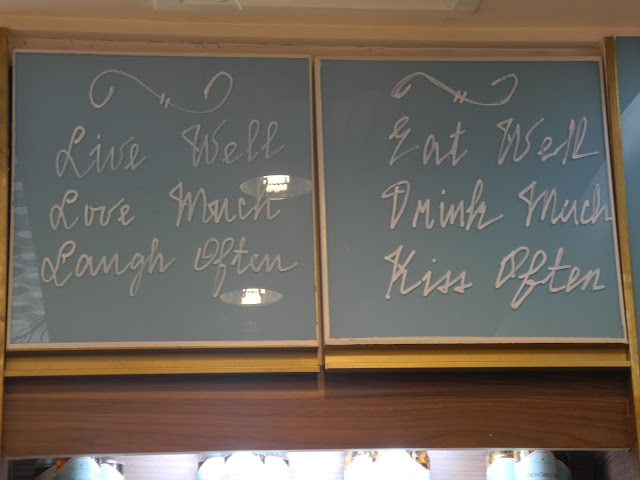 Live Well
Love Much
Laugh Often
Eat Well
Drink Much
Kiss Often